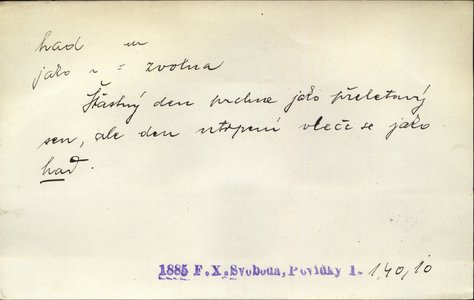 had m
jako h = zvolna
Šťastný den prchne jako přeletavý
sen, ale den utrpení vleče se jako
had.
1885 F.X.Svoboda, Povídky 1. 140,10